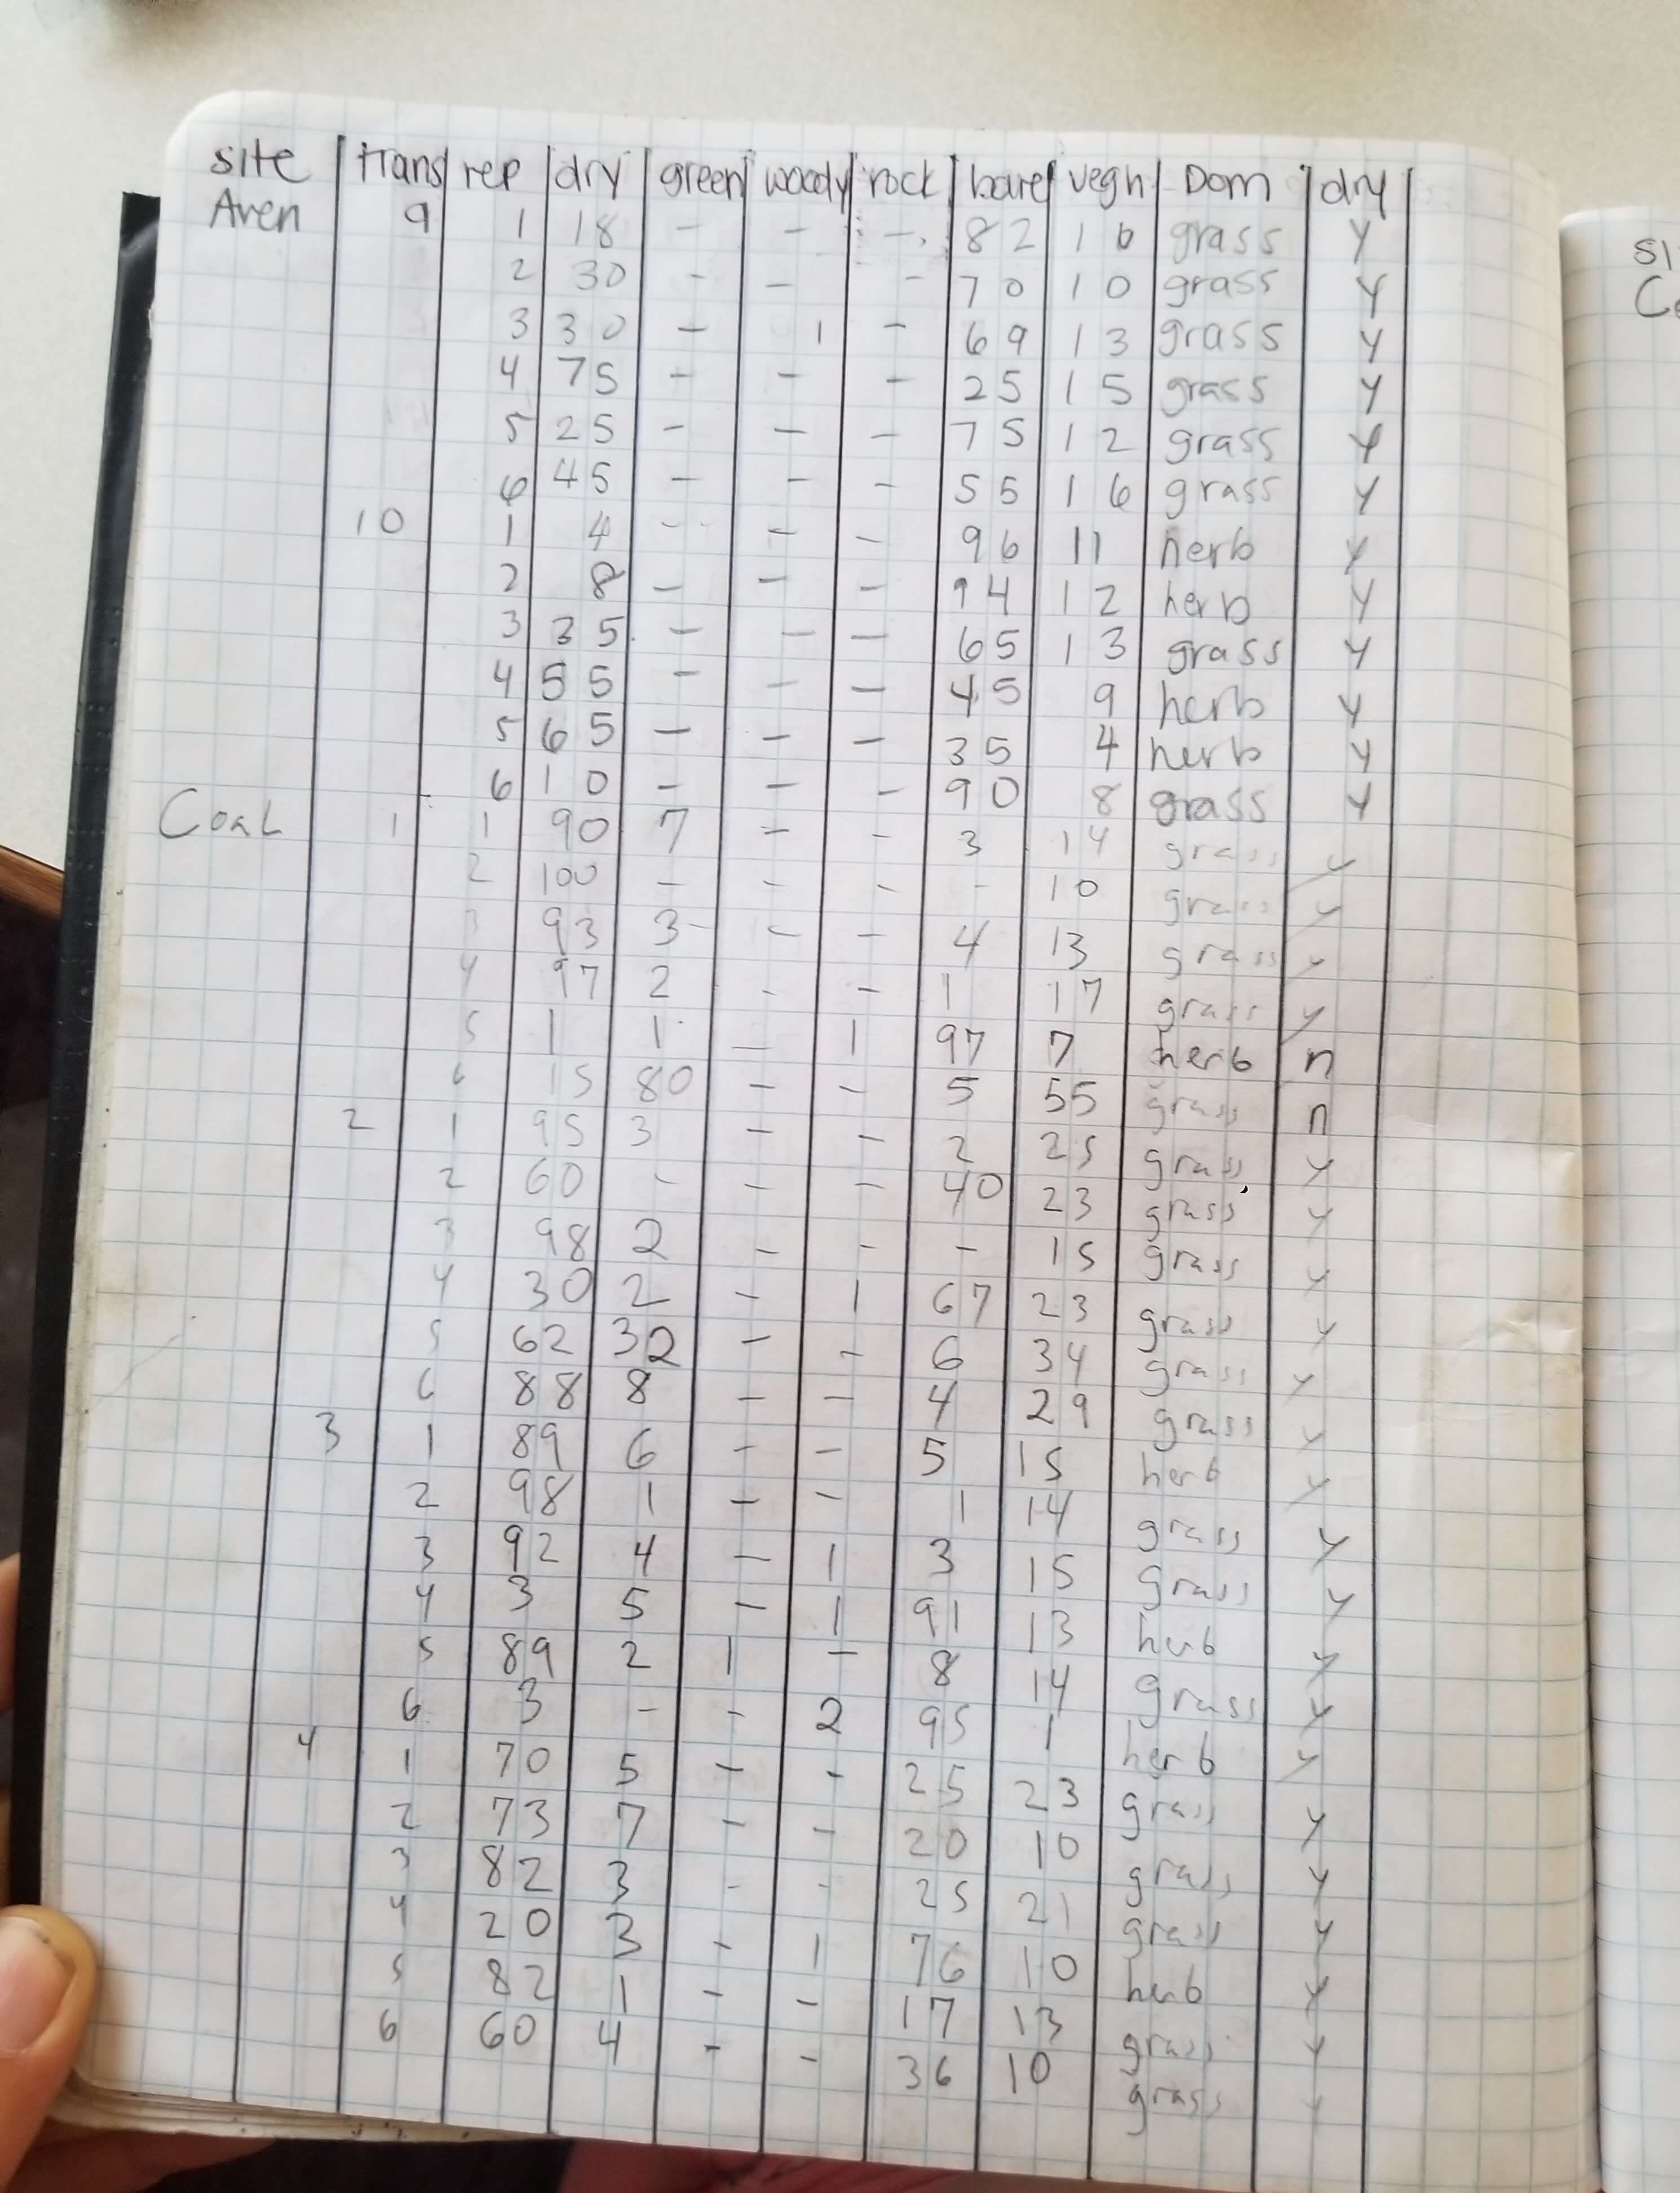 site trans rep dry green woody rock bare vegh Dom dry
Aven 9 1 18 - - - 82 16 grass y
2 30 - - - 70 10 grass y
3 30 - 1 - 69 13 grass y
4 75 - - - 25 15 grass y
5 25 - - - 75 12 grass y
6 45 - - - 55 16 grass y
10 1 4 - - - 96 11 herb y
2 8 - - - 94 12 herb y
3 35 - - - 65 13 grass y
4 55 - - - 45 9 herb y
5 65 - - - 35 4 herb y
6 10 - - - 90 8 grass y
Coal 1 1 90 7 - - 3 14 grass y
2 100 - - - - 10 grass y
3 93 3 - - 4 13 grass y
4 97 2 - - 1 17 grass y
5 1 1 - 1 97 7 herb n
6 15 80 - - 5 55 grass n
2 1 95 3 - - 2 25 grass y
2 60 - - - 40 23 grass y
3 98 2 - - - 15 grass y
4 30 2 - 1 67 23 grass y
5 62 32 - - 6 34 grass y
6 88 8 - - 4 29 grass y
3 1 89 6 - - 5 15 herb y
2 98 1 - - 1 14 grass y
3 92 4 - 1 3 15 grass y
4 3 5 - 1 91 13 herb y
5 89 2 1 - 8 14 grass y
6 3 - - 2 95 1 herb y
4 1 70 5 - - 25 23 grass y
2 73 7 - - 20 10 grass y
3 82 3 - - 25 21 grass y
4 20 3 - 1 76 10 herb y
5 82 1 - - 17 13 grass y
6 60 4 - - 36 10 grass y